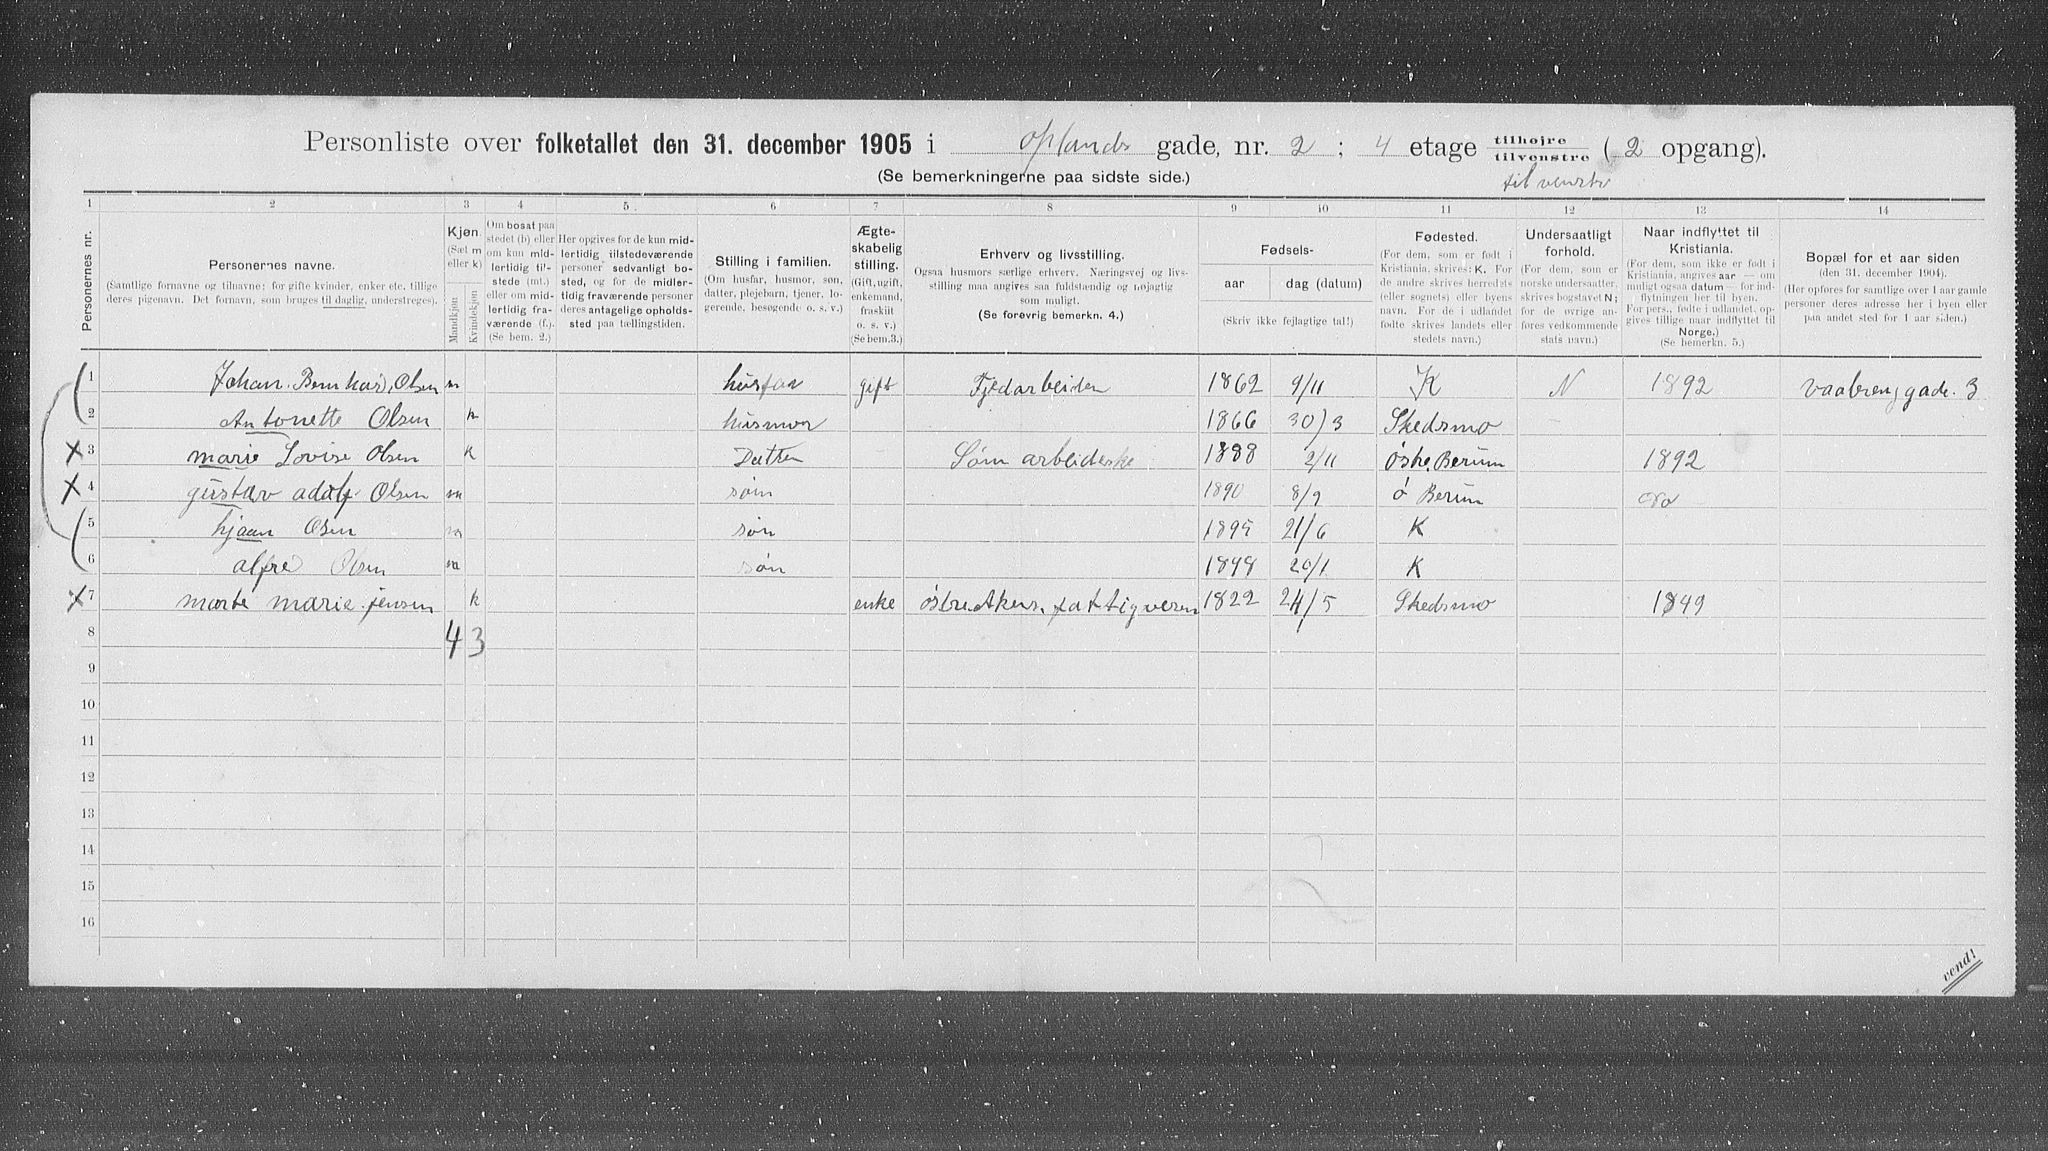 Personliste over folketallet den 31. december 1905 i Oplands gade, nr. 2 ; 4 etage tilhøjre tilvenstre ( 2 opgang).
(Se bemerkningerne paa sidste side.) til venstre
1 2 3 4 5 6 7 8 9 10 11 12 13 14
Personernes nr.
Personernes navne.
(Samtlige fornavne og tilnavne; for gifte kvinder, enker etc. tillige deres pigenavn. Det fornavn, som bruges til daglig, understreges).
Kjøn.
(Sæt m eller k)
Mandkjøn
Kvindekjøn
Om bosat paa stedet (b) eller om kun midlertidig tilstede (mt.) eller om midlertidig fraværende (f.). (Se bem. 2.)
Her opgives for de kun midlertidig tilstedeværende personer sedvanligt bosted, og for de midlertidig fraværende personer deres antagelige opholdssted paa tællingstiden.
Stilling i familien.
(Om husfar, husmor, søn, datter, plejebarn, tjener, logerende, besøgende o. s. v.)
Ægteskabelig stilling.
(Gift, ugift, enkemand, fraskilt o. s. v.)
(Se bem.3.)
Erhverv og livsstilling.
Ogsaa husmors særlige erhverv. Næringsvej og livsstilling maa angives saa fuldstændig og nøjagtig som muligt.
(Se forøvrig bemerkn. 4.)
Fødsels-
aar
dag (datum)
(Skriv ikke fejlagtige tal!)
Fødested.
(For dem, som er født i Kristiania, skrives: K. For de andre skrives herredets (eller sognets) eller byens navn. For de i udlandet fødte skrives landets eller stedets navn.)
Undersaatligt forhold.
(For dem, som er norske undersaatter, skrives bogstavet N; for de øvrige anføres vedkommende stats navn.)
Naar indflyttet til Kristiania.
(For dem, som ikke er født i Kristiania, angives aar — om muligt ogsaa datum — for indflytningen her til byen. For pers., fødte i udlandet, opgives tillige naar indflyttet til Norge.)
(Se bemerkn. 5.)
Bopæl for et aar siden
(den 31. december 1904).
(Her opføres for samtlige over 1 aar gamle personer deres adresse her i byen eller paa andet sted for 1 aar siden.)
1 Johan. Bernhard. Olsen m husfar gift 1862 9/11 K N 1892 3
2 Antonette Olsen k husmor 1866 30/3 Skedsmo
3 marie Lovise Olsen k Datter Søm arbeideske 1888 2/11 Berum 1892
4 gustav adolf Olsen m søn 1890 8/9 ø Berum do
5 hjaan Olsen m søn 1895 21/6 K
6 alfre Olsen m søn 1898 20/1 K
7 marte marie jensen k enke østre Akers. fattigvesen 1822 24/5 Skedsmo 1849
8 4 3
9
10
11
12
13
14
15
16
vend!